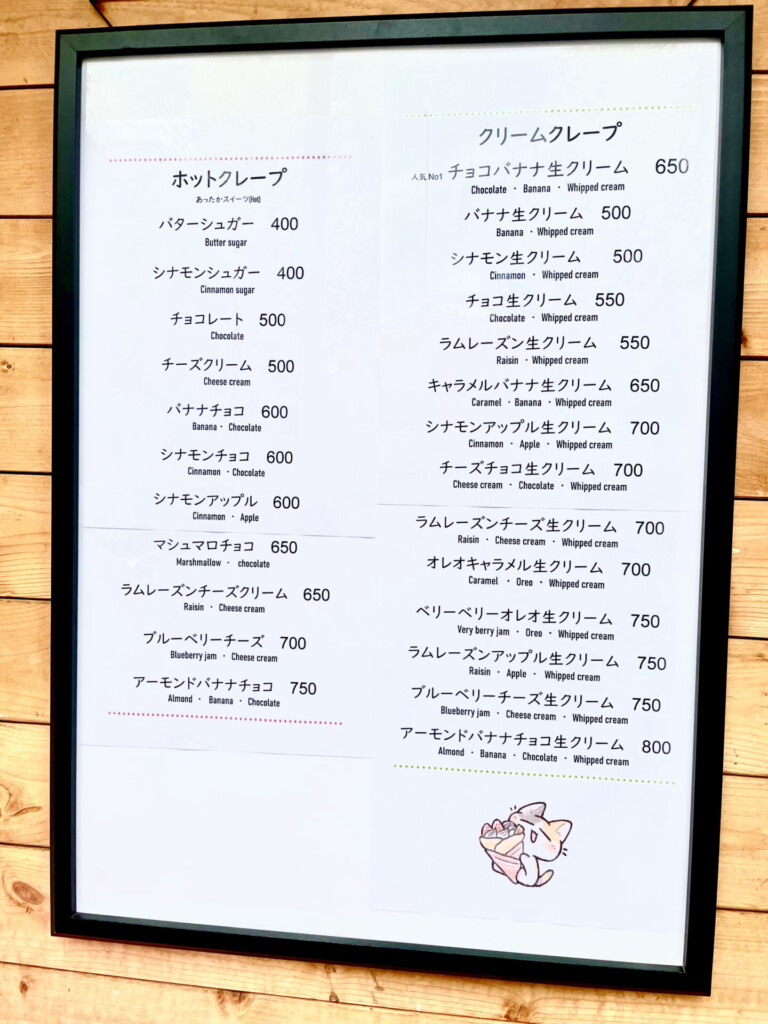 ホットクレープ
あったかスイーツ(Hot)
バターシュガー 400
Butter sugar
シナモンシュガー 400
Cinnamon sugar
チョコレート 500
Chocolate
チーズクリーム 500
Cheese cream
バナナチョコ 600
Banana・ Chocolate
シナモンチョコ 600
Cinnamon ・Chocolate
シナモンアップル 600
Cinnamon ・ Apple
マシュマロチョコ 650
Marshmallow ・ chocolate
ラムレーズンチーズクリーム 650
Raisin ・ Cheese cream
ブルーベリーチーズ 700
Blueberry jam ・ Cheese cream
アーモンドバナナチョコ 750
Almond ・ Banana ・ Chocolate
クリームクレープ
人気No1 チョコバナナ生クリーム 650
Chocolate ・ Banana ・ Whipped cream
バナナ生クリーム 500
Banana ・ Whipped cream
シナモン生クリーム 500
Cinnamon ・ Whipped cream
チョコ生クリーム 550
Chocolate ・ Whipped cream
ラムレーズン生クリーム 550
Raisin ・ Whipped cream
キャラメルバナナ生クリーム 650
Caramel ・ Banana ・ Whipped cream
シナモンアップル生クリーム 700
Cinnamon ・ Apple ・ Whipped cream
チーズチョコ生クリーム 700
Cheese cream ・ Chocolate ・ Whipped cream
ラムレーズンチーズ生クリーム 700
Raisin ・ Cheese cream ・ Whipped cream
オレオキャラメル生クリーム 700
Caramel ・ Oreo ・ Whipped cream
ベリーベリーオレオ生クリーム 750
Very berry jam ・ Oreo ・ Whipped cream
ラムレーズンアップル生クリーム 750
Raisin ・ Apple ・ Whipped cream
ブルーベリーチーズ生クリーム 750
Blueberry jam ・ Cheese cream ・ Whipped cream
アーモンドバナナチョコ生クリーム 800
Almond ・ Banana ・ Chocolate ・ Whipped cream